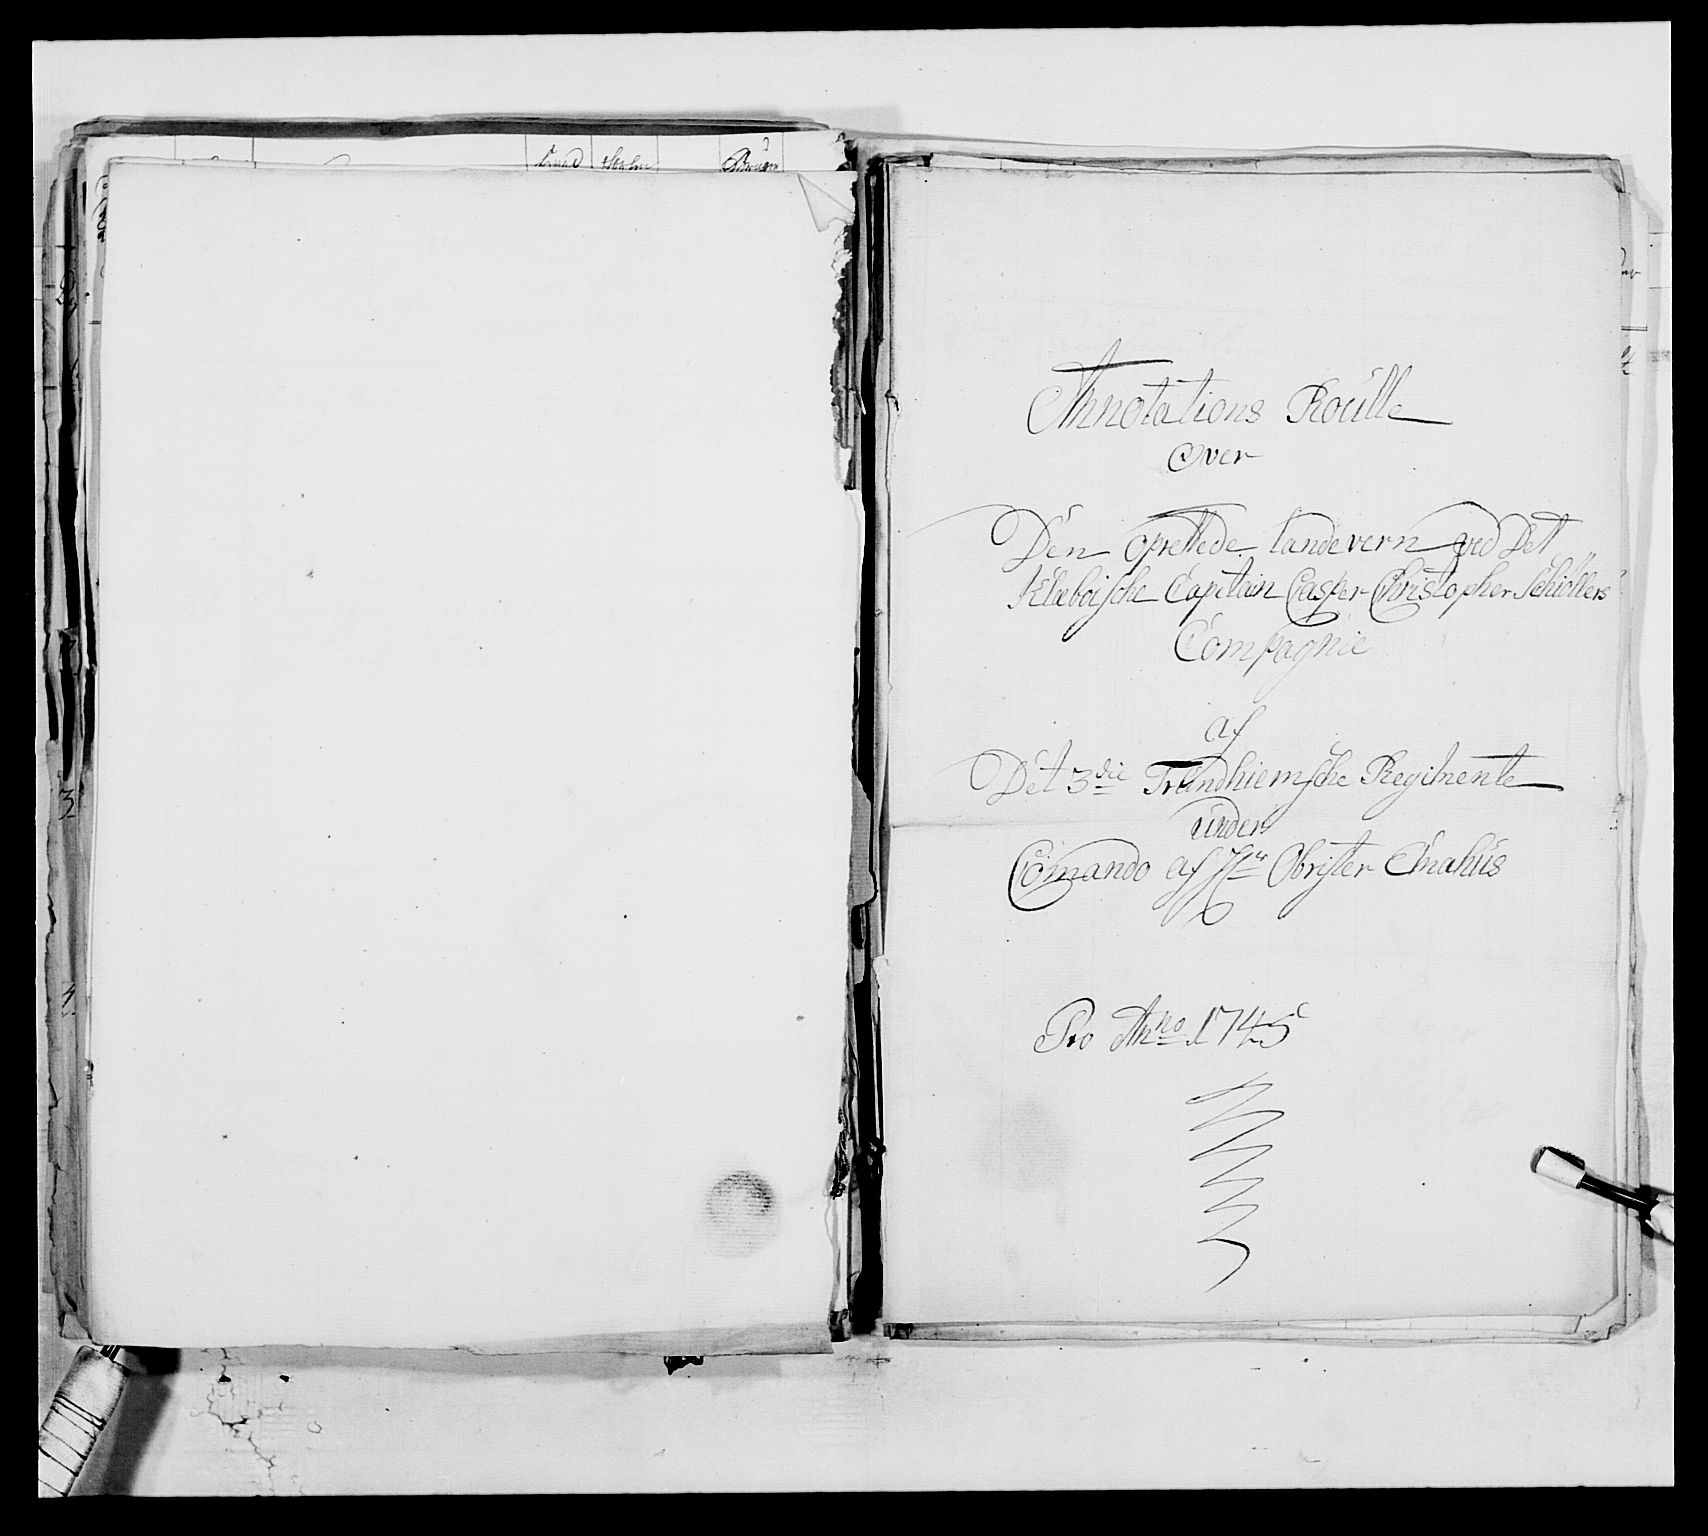 Annotations Roülle
Over
Den oprettede landevern ved Det
Klæboische Capitain Casper Christopher Schiøllers
Compagnie
af
Det 3die Trundhiemsche Regimente
ünder
Comando af Hr Obrister Emahüs
Pro Anno 1745